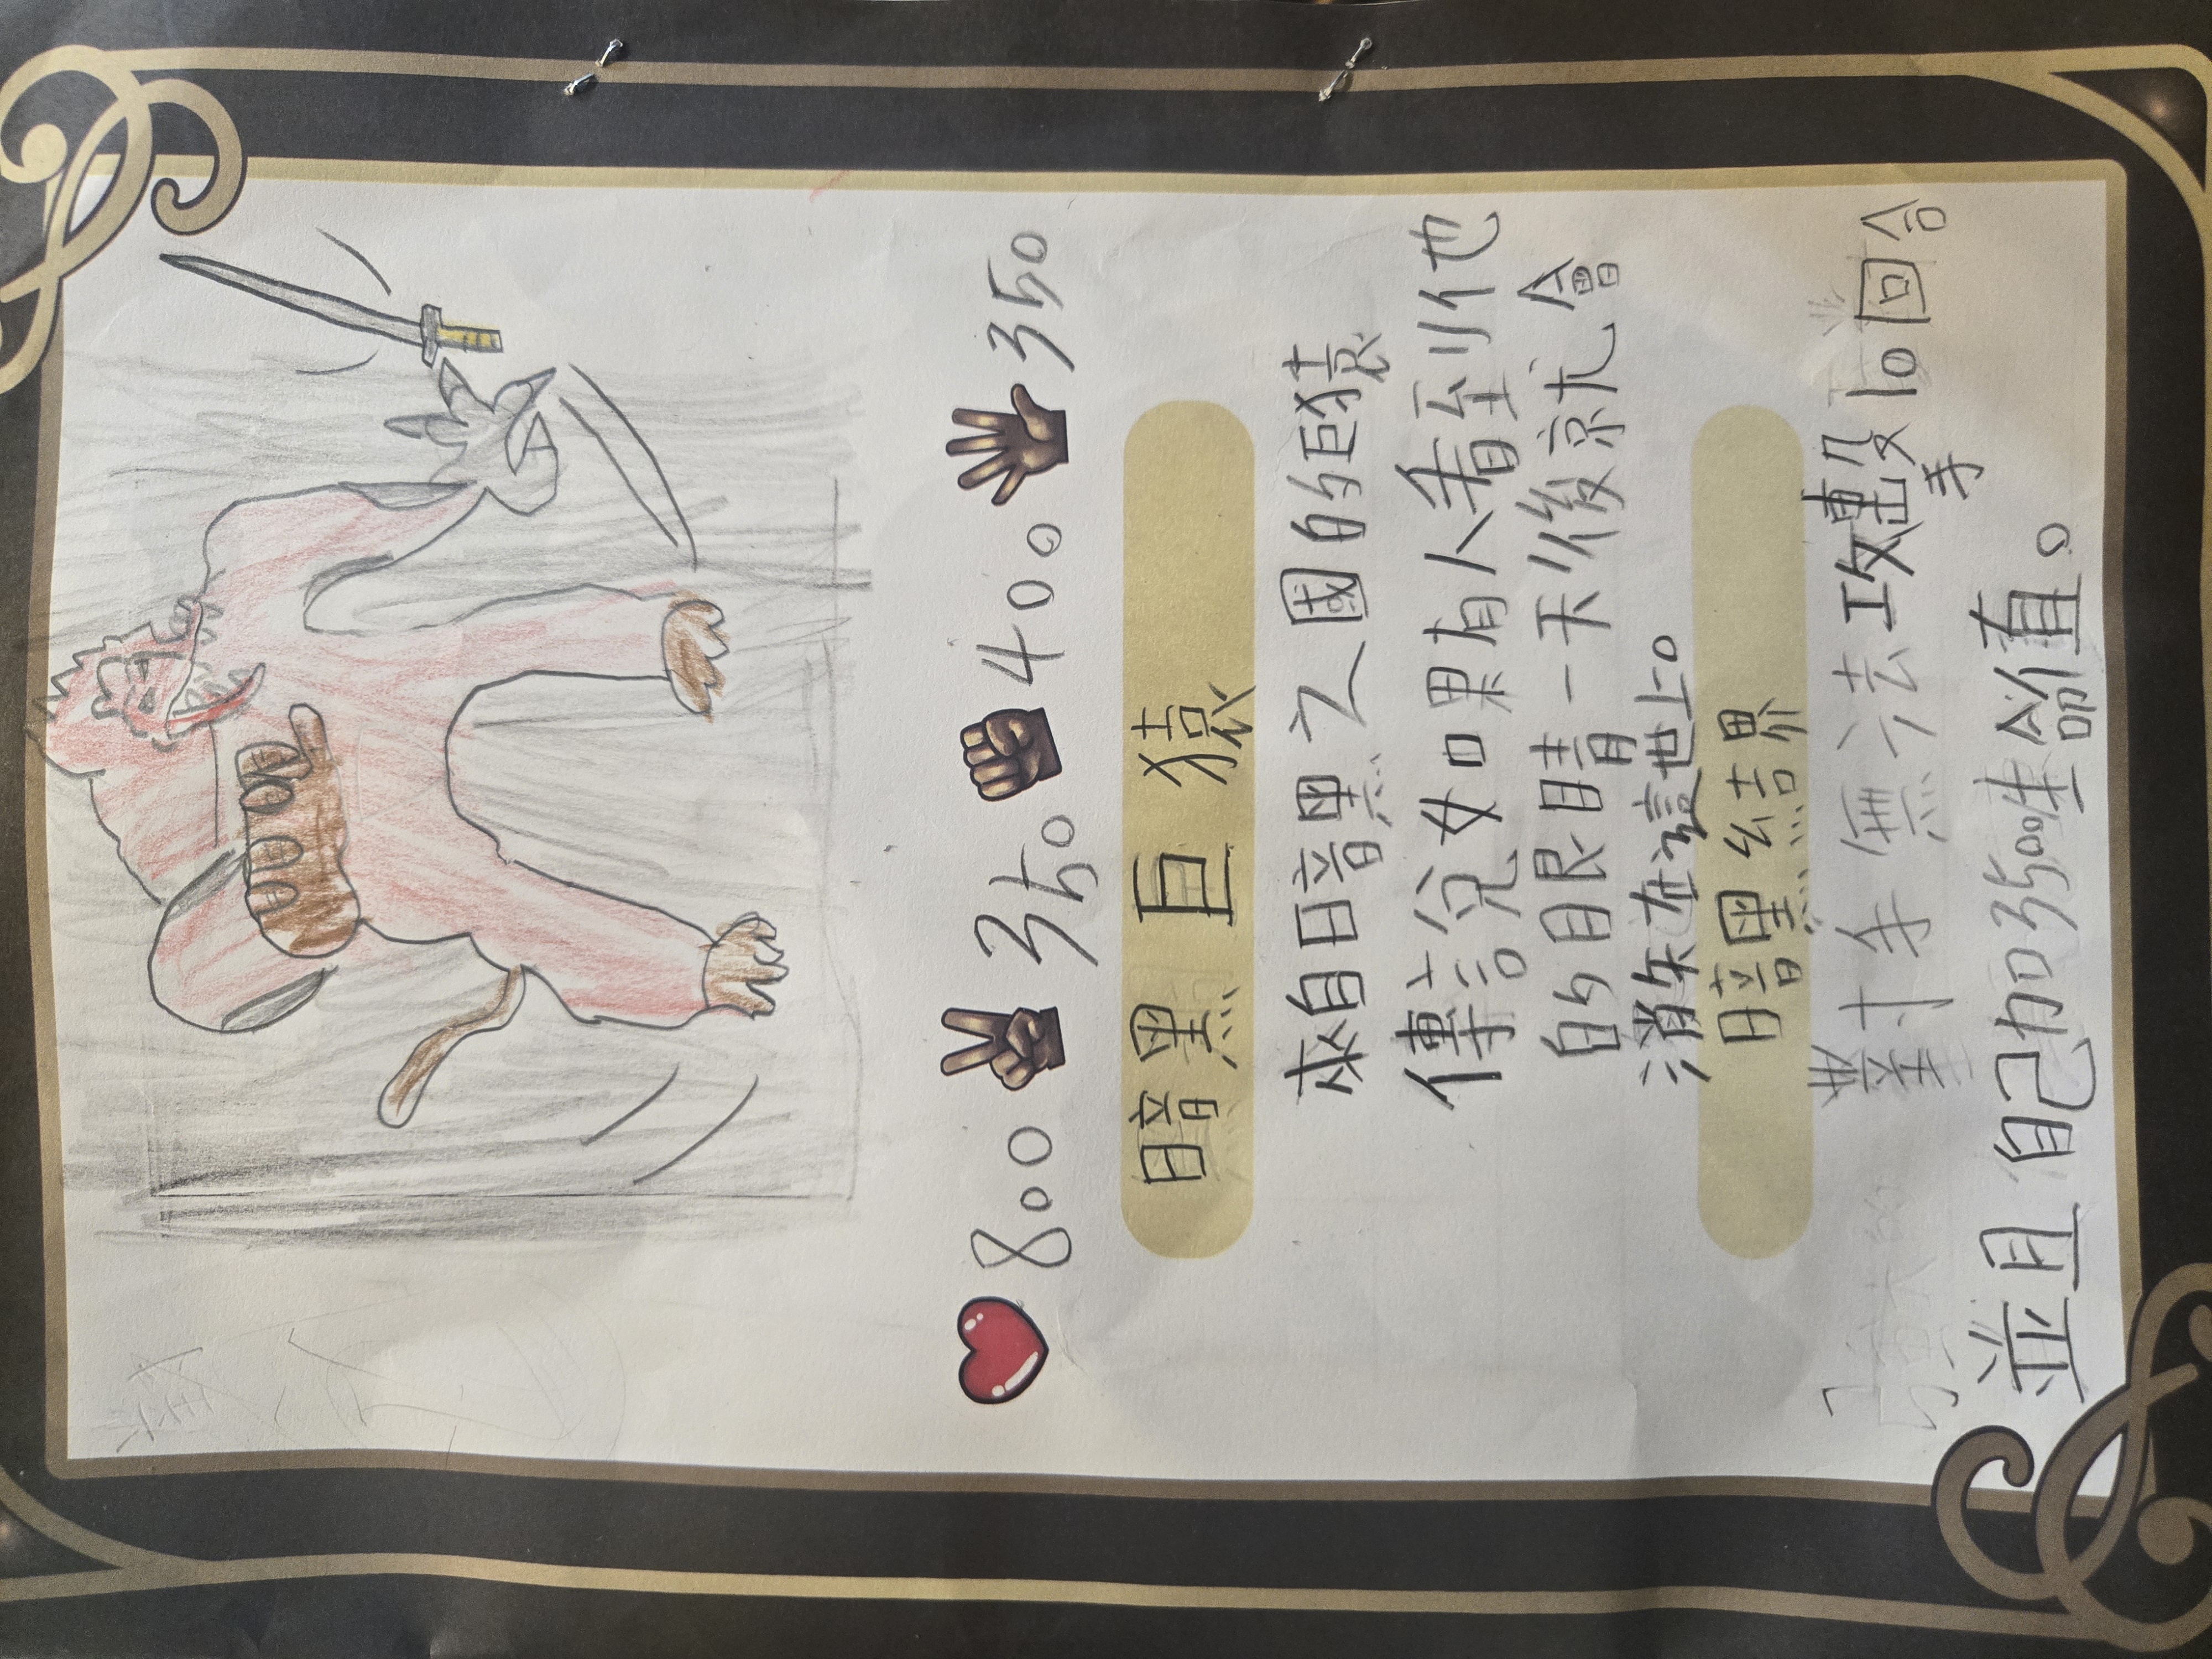 800 350 400 350
暗黑巨猿
來自暗黑之國的巨猿
傳說如果有人看到他
的眼睛一天後就會
消失在這世上。
暗黑結界
對手無法攻擊10回合
並且自己加3500生命值。